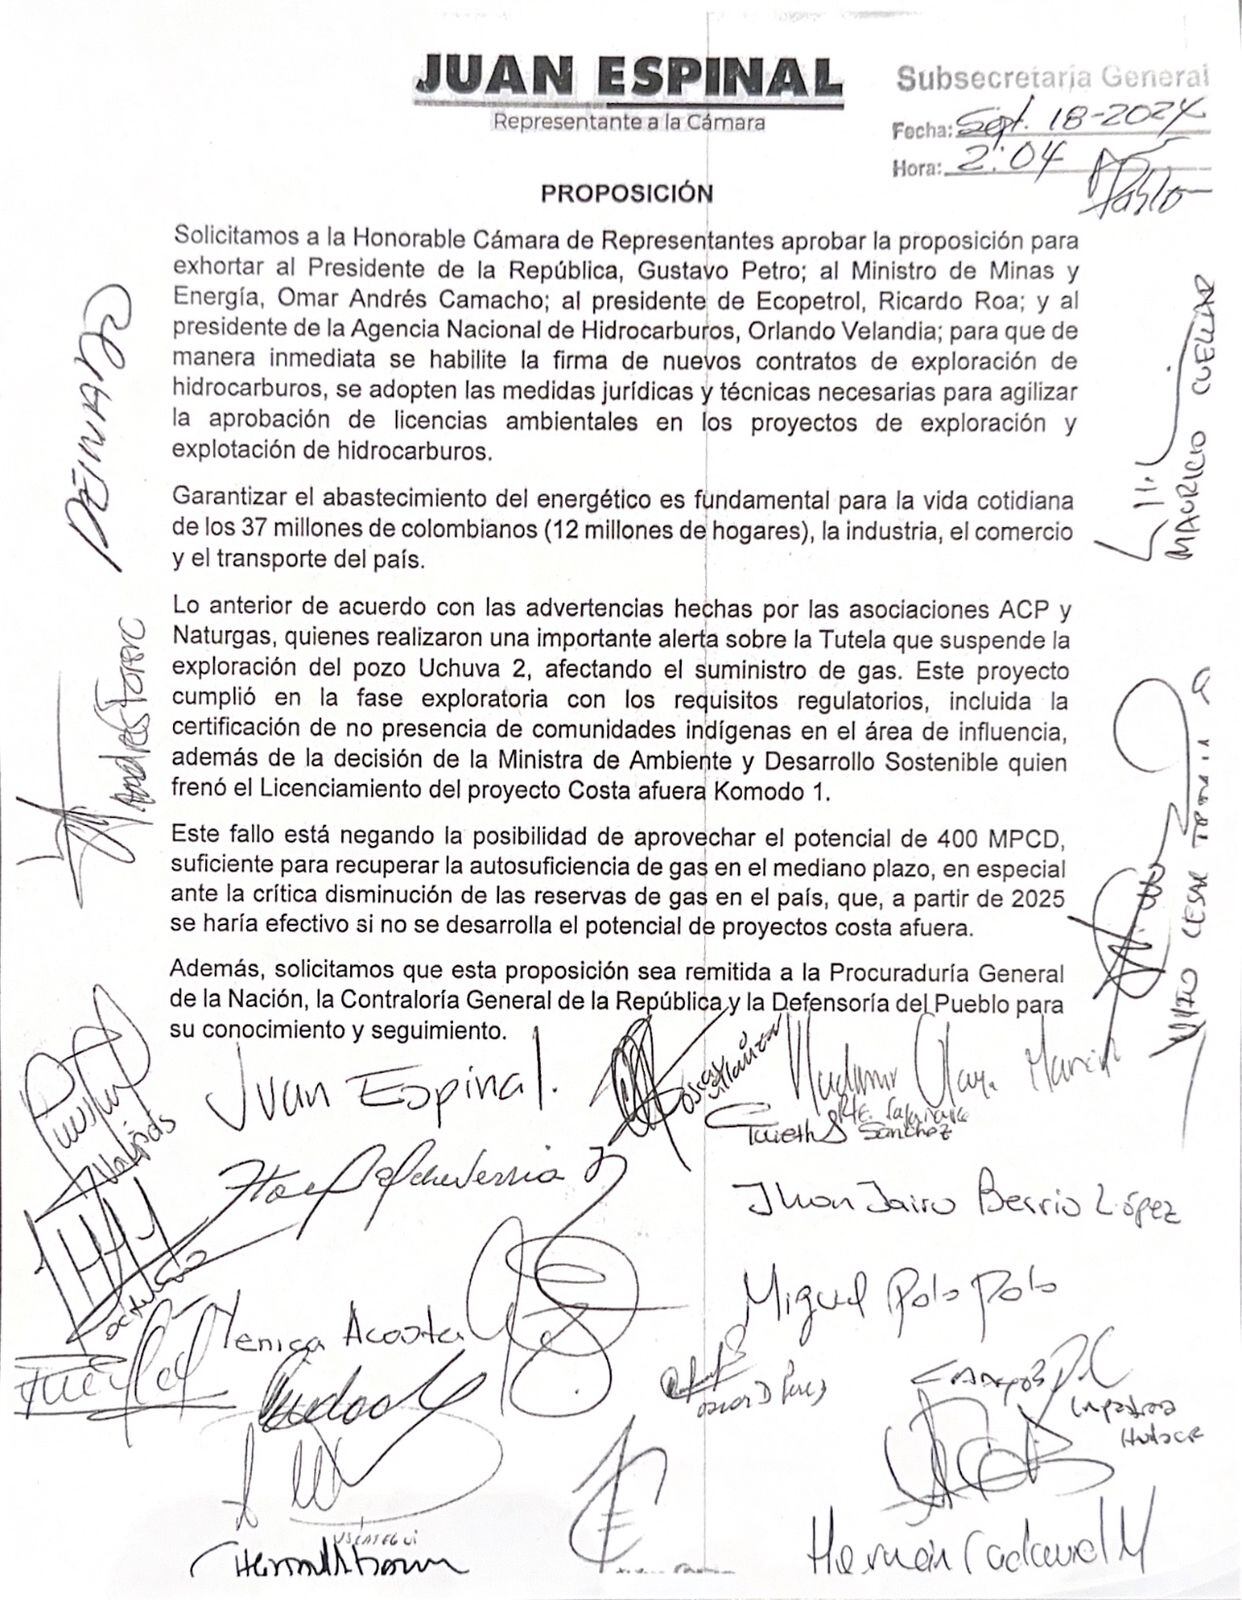 JUAN ESPINAL
Representante a la Cámara
Subsecretaria General
Fecha: Sept. 18-2024
Hora: 2:04
PROPOSICIÓN
Solicitamos a la Honorable Cámara de Representantes aprobar la proposición para
exhortar al Presidente de la República, Gustavo Petro; al Ministro de Minas y
Energía, Omar Andrés Camacho; al presidente de Ecopetrol, Ricardo Roa; y al
presidente de la Agencia Nacional de Hidrocarburos, Orlando Velandia; para que de
manera inmediata se habilite la firma de nuevos contratos de exploración de
hidrocarburos, se adopten las medidas jurídicas y técnicas necesarias para agilizar
la aprobación de licencias ambientales en los proyectos de exploración y
explotación de hidrocarburos.
Garantizar el abastecimiento del energético es fundamental para la vida cotidiana
de los 37 millones de colombianos (12 millones de hogares), la industria, el comercio
y el transporte del país.
Lo anterior de acuerdo con las advertencias hechas por las asociaciones ACP y
Naturgas, quienes realizaron una importante alerta sobre la Tutela que suspende la
exploración del pozo Uchuva 2, afectando el suministro de gas. Este proyecto
cumplió en la fase exploratoria con los requisitos regulatorios, incluida la
certificación de no presencia de comunidades indígenas en el área de influencia,
además de la decisión de la Ministra de Ambiente y Desarrollo Sostenible quien
frenó el Licenciamiento del proyecto Costa afuera Komodo 1.
Este fallo está negando la posibilidad de aprovechar el potencial de 400 MPCD,
suficiente para recuperar la autosuficiencia de gas en el mediano plazo, en especial
ante la crítica disminución de las reservas de gas en el país, que, a partir de 2025
se haría efectivo si no se desarrolla el potencial de proyectos costa afuera.
Además, solicitamos que esta proposición sea remitida a la Procuraduría General
de la Nación, la Contraloría General de la República y la Defensoría del Pueblo para
su conocimiento y seguimiento.
MAURICIO CUELLAR
Andrés Forero
Juan Espinal.
Vladimir Olaya Mancip
Yulieth Sánchez
Jhon Jairo Berrio López
Miguel Polo Polo
Yenica Acosta
Oscar D Perez
Hernán Cadavid M